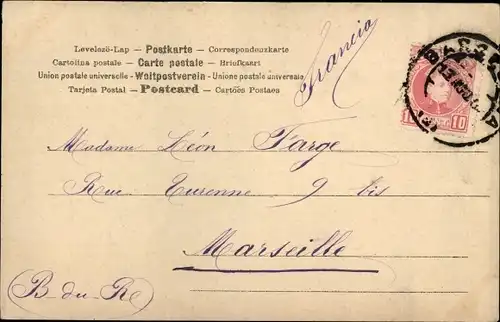 Levelező-Lap — Postkarte — Correspondenzkarte
Cartolina postale — Carte postale — Briefkaart
Union postale universelle — Weltpostverein — Unione postale universale
Tarjeta Postal — Postcard — Cartões Postaes
Francia
10
Madame Léon Farge
Rue Turenne 9 bis
Marseille
(B-du-R)